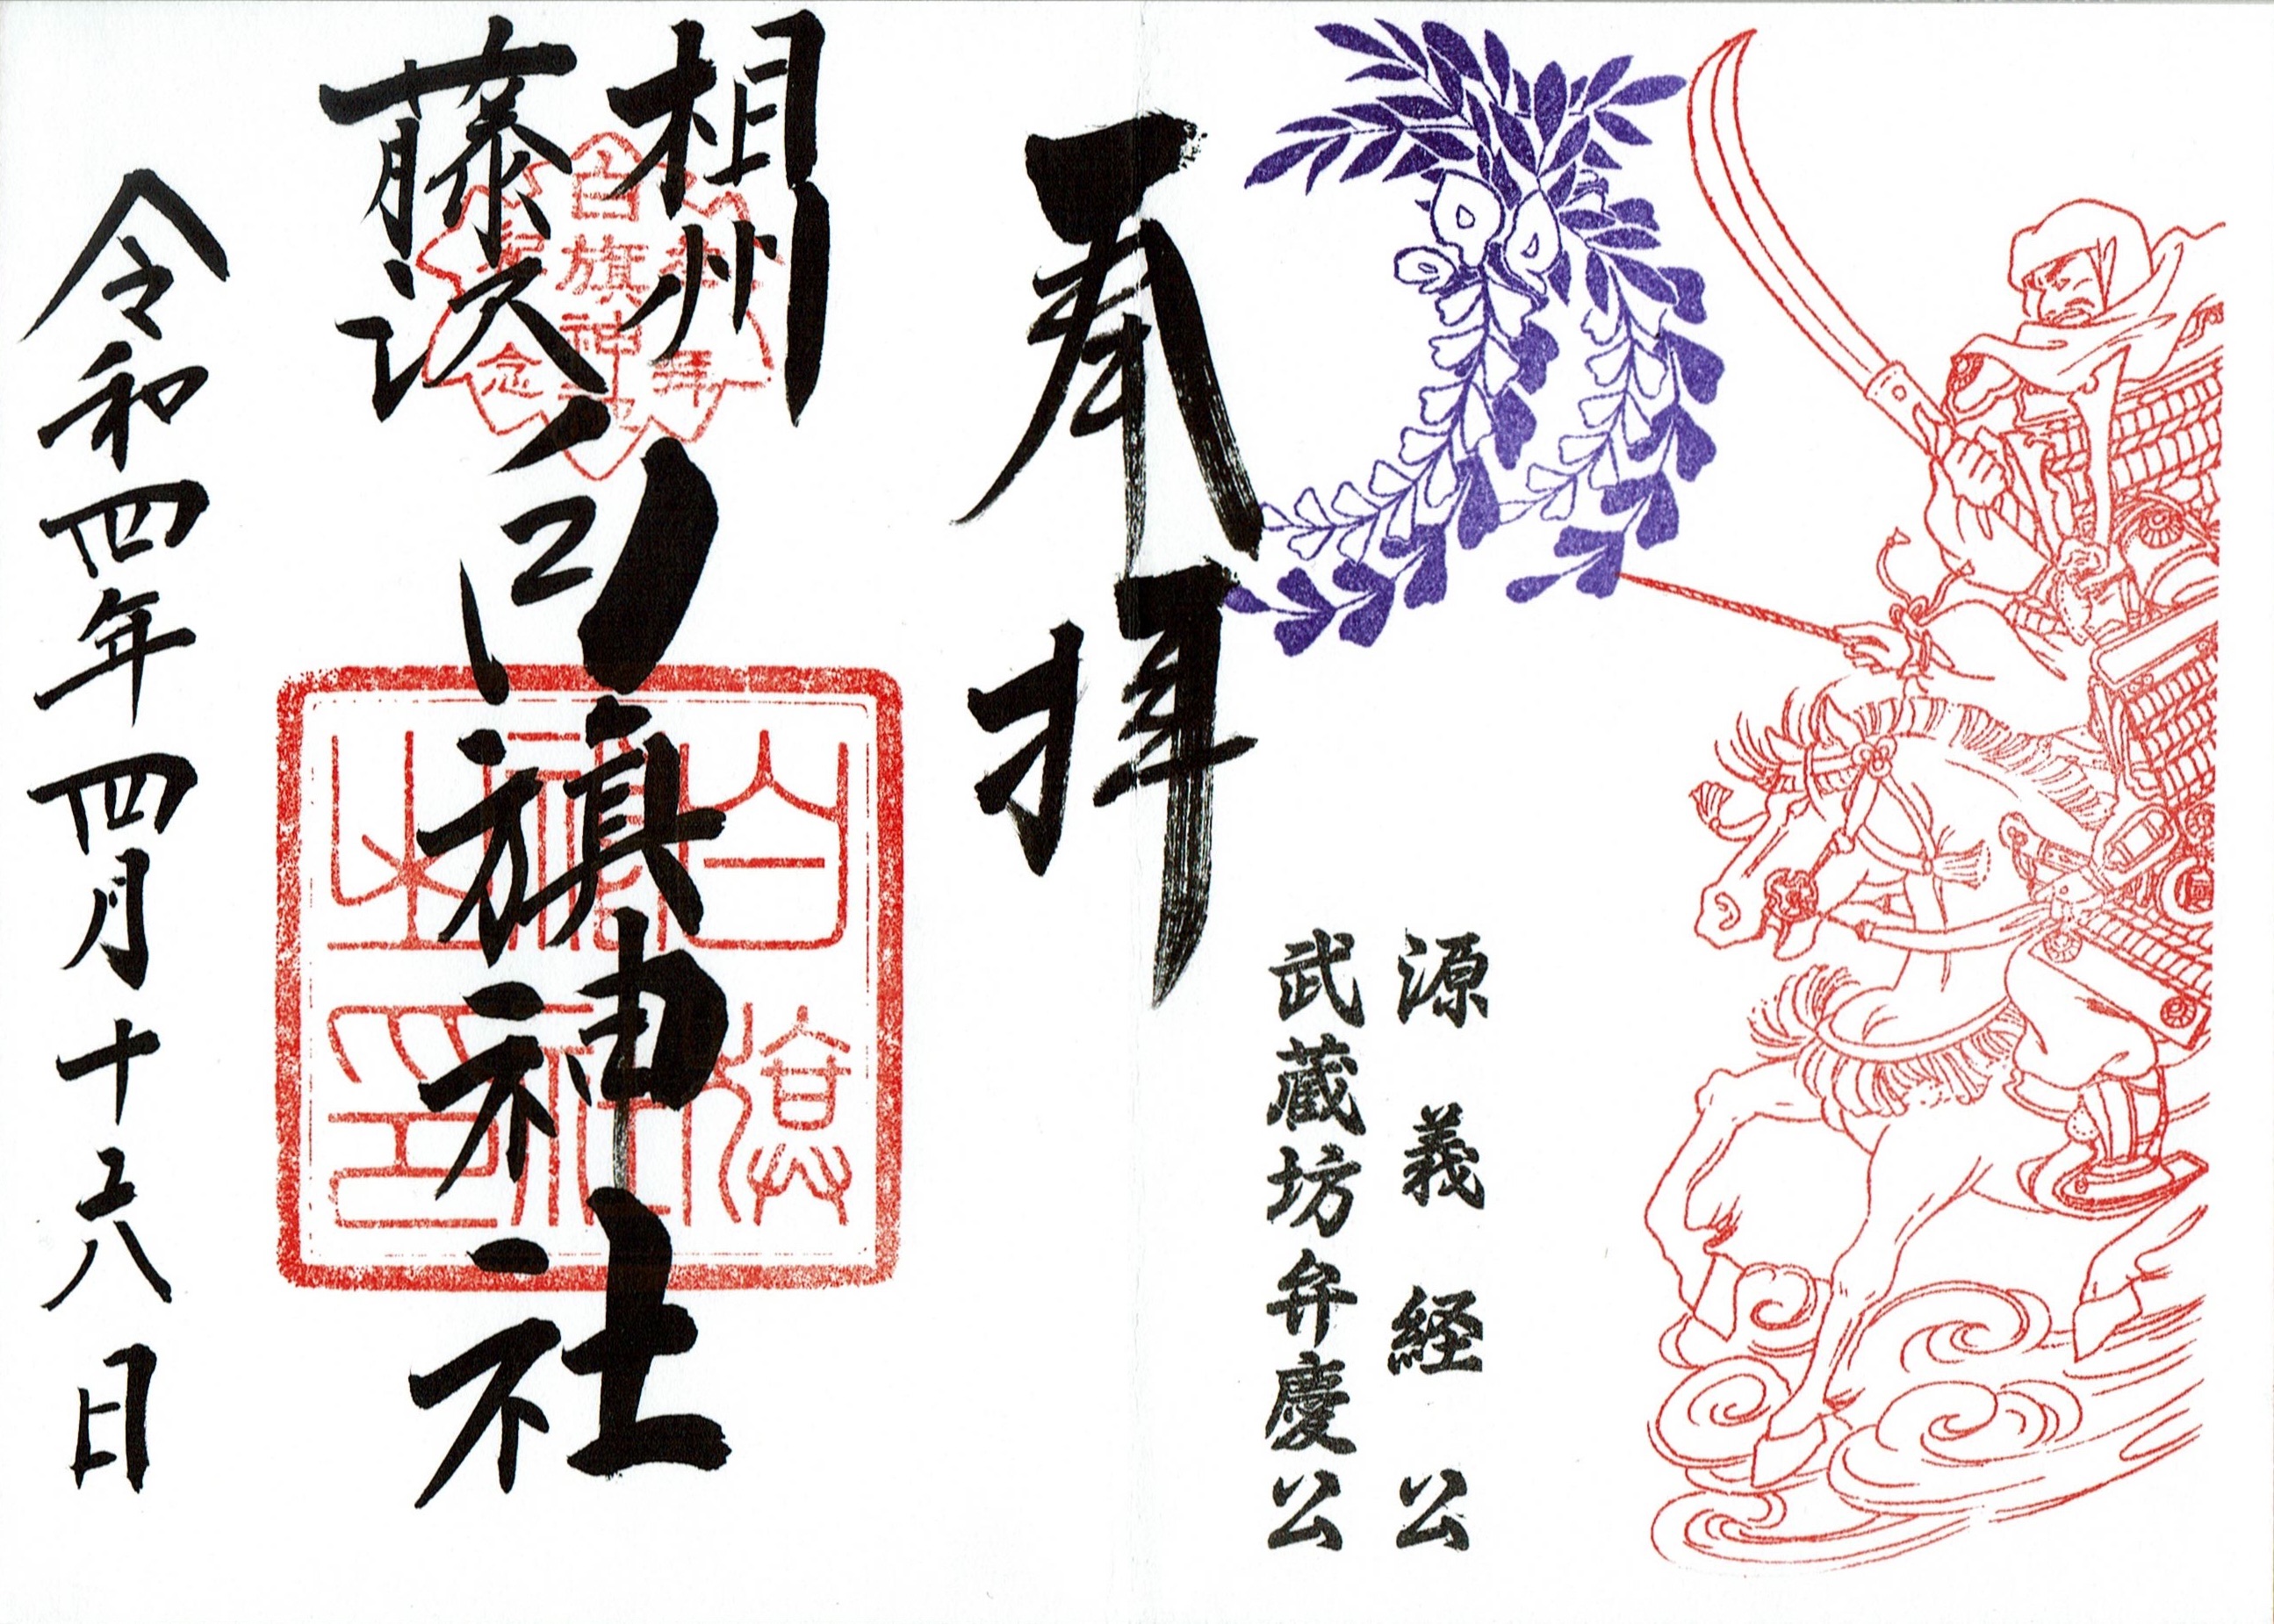 源義経公
武蔵坊弁慶公
奉拝
相州
藤沢
白旗神社
参拝
白旗神社
記念
白旗
神社
之印
令和四年四月十六日